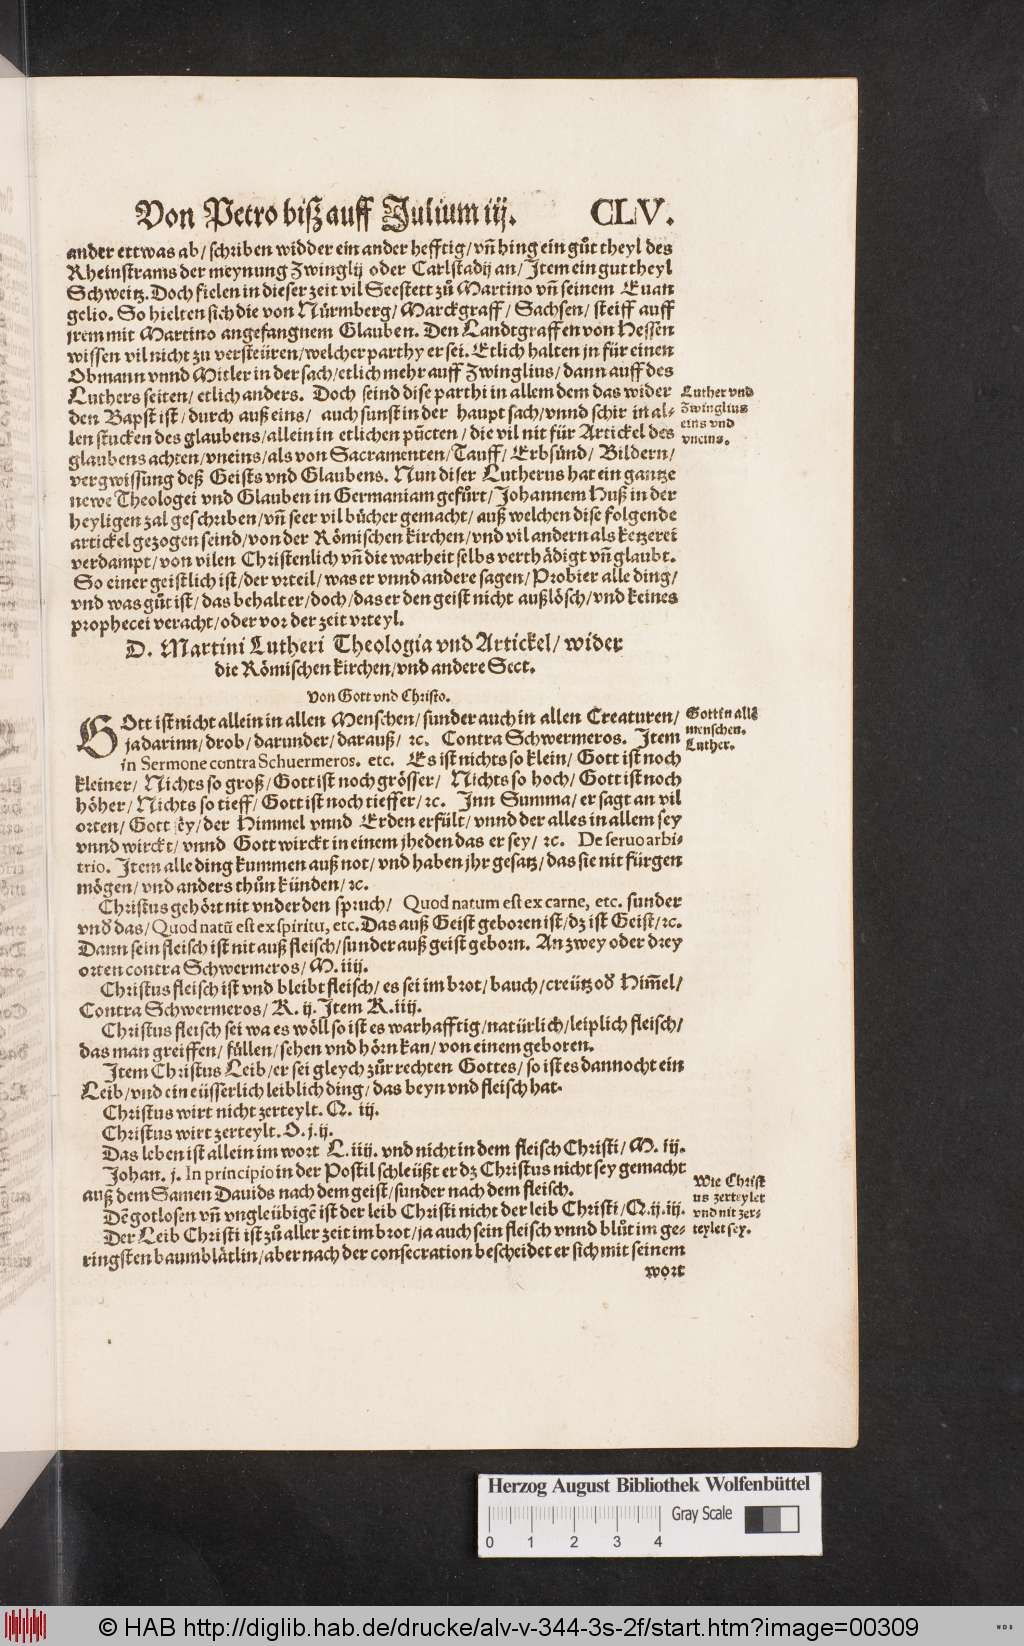 Von Petro biß auff Julium iij. CLV.
ander ettwas ab/ schriben widder ein ander hefftig/ vñ hing ein gůt theyl des
Rheinstrams der meynung Zwinglij oder Carlstadij an/ Item ein gut theyl
Schweitz. Doch fielen in dieser zeit vil Seestett zů Martino vñ seinem Euan
gelio. So hielten sich die von Nürmberg/ Marckgraff/ Sachsen/ steiff auff
jrem mit Martino angefangnem Glauben. Den Landtgraffen von Hessen
wissen vil nicht zu versteüren/ welcher parthy er sei. Etlich halten jn für einen
Obmann vnnd Mitler in der sach/ etlich mehr auff Zwinglius/ dann auff des
Luthers seiten/ etlich anders. Doch seind dise parthi in allem dem das wider
den Bapst ist/ durch auß eins/ auch sunst in der haupt sach/ vnnd schir in al-
len stucken des glaubens/ allein in etlichen pücten/ die vil nit für Artickel des
glaubens achten/ vneins/ als von Sacramenten/ Tauff/ Erbsünd/ Bildern/
vergwissung deß Geists vnd Glaubens. Nun diser Lutherus hat ein gantze
newe Theologei vnd Glauben in Germaniam gefůrt/ Johannem Huß in der
heyligen zal geschriben/ vñ seer vil bücher gemacht/ auß welchen dise folgende
artickel gezogen seind/ von der Römischen kirchen/ vnd vil andern als ketzerei
verdampt/ von vilen Christenlich vñ die warheit selbs verthädigt vñ glaubt.
So einer geistlich ist/ der vrteil/ was er vnnd andere sagen/ Probier alle ding/
vnd was gůt ist/ das behalt er/ doch/ das er den geist nicht außlösch/ vnd keines
prophecei veracht/ oder vor der zeit vrteyl.
Luther vnd
Zwinglius
eins vnd
vneins.
D. Martini Lutheri Theologia vnd Artickel/ wider
die Römischen kirchen/ vnd andere Sect.
Von Gott vnd Christo.
GOtt ist nicht allein in allen Menschen/ sunder auch in allen Creaturen/
ja darinn/ drob/ darunder/ darauß/ ꝛc. Contra Schwermeros. Item
in Sermone contra Schuermeros. etc. Es ist nichts so klein/ Gott ist noch
kleiner/ Nichts so groß/ Gott ist noch grösser/ Nichts so hoch/ Gott ist noch
höher/ Nichts so tieff/ Gott ist noch tieffer/ ꝛc. Inn Summa/ er sagt an vil
orten/ Gott sey/ der Himmel vnnd Erden erfült/ vnnd der alles in allem sey
vnnd wirckt/ vnnd Gott wirckt in einem jheden das er sey/ ꝛc. De seruo arbi-
trio. Item alle ding kummen auß not/ vnd haben jhr gesatz/ das sie nit fürgen
mögen/ vnd anders thůn künden/ ꝛc.
Gott in allẽ
menschen.
Luther.
Christus gehört nit vnder den spruch/ Quod natum est ex carne, etc. sunder
vnd̃ das/ Quod natũ est ex spiritu, etc. Das auß Geist geboren ist/ dz ist Geist/ ꝛc.
Dann sein fleisch ist nit auß fleisch/ sunder auß geist geborn. An zwey oder drey
orten contra Schwermeros/ M. iiij.
Christus fleisch ist vnd bleibt fleisch/ es sei im brot/ bauch/ creütz od̃ Him̃el/
Contra Schwermeros/ R. ij. Item R. iiij.
Christus fleisch sei wa es wöll so ist es warhafftig/ natürlich/ leiplich fleisch/
das man greiffen/ fůllen/ sehen vnd hörn kan/ von einem geboren.
Item Christus Leib/ er sei gleych zůr rechten Gottes/ so ist es dannocht ein
Leib/ vnd ein eüsserlich leiblich ding/ das beyn vnd fleisch hat.
Christus wirt nicht zerteylt. Q. iij.
Christus wirt zerteylt. O. j. ij.
Das leben ist allein im wort L. iiij. vnd nicht in dem fleisch Christi/ M. iij.
Johan. j. In principio in der Postil schleüßt er dz Christus nicht sey gemacht
auß dem Samen Dauids nach dem geist/ sunder nach dem fleisch.
Dẽ gotlosen vñ vngleübigẽ ist der leib Christi nicht der leib Christi/ Q. ij. iij.
Der Leib Christi ist zů aller zeit im brot/ ja auch sein fleisch vnnd blůt im ge-
ringsten baumblätlin/ aber nach der consecration bescheidet er sich mit seinem
wort
Wie Christ
us zerteylet
vnd nit zer-
teylet sey.
Herzog August Bibliothek Wolfenbüttel
Gray Scale
0 1 2 3 4
© HAB http://diglib.hab.de/drucke/alv-v-344-3s-2f/start.htm?image=00309